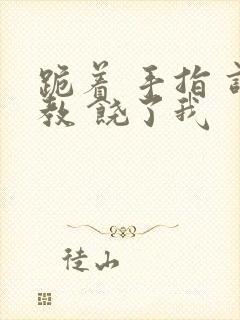 跪着 手指
教 饶了我
徒山